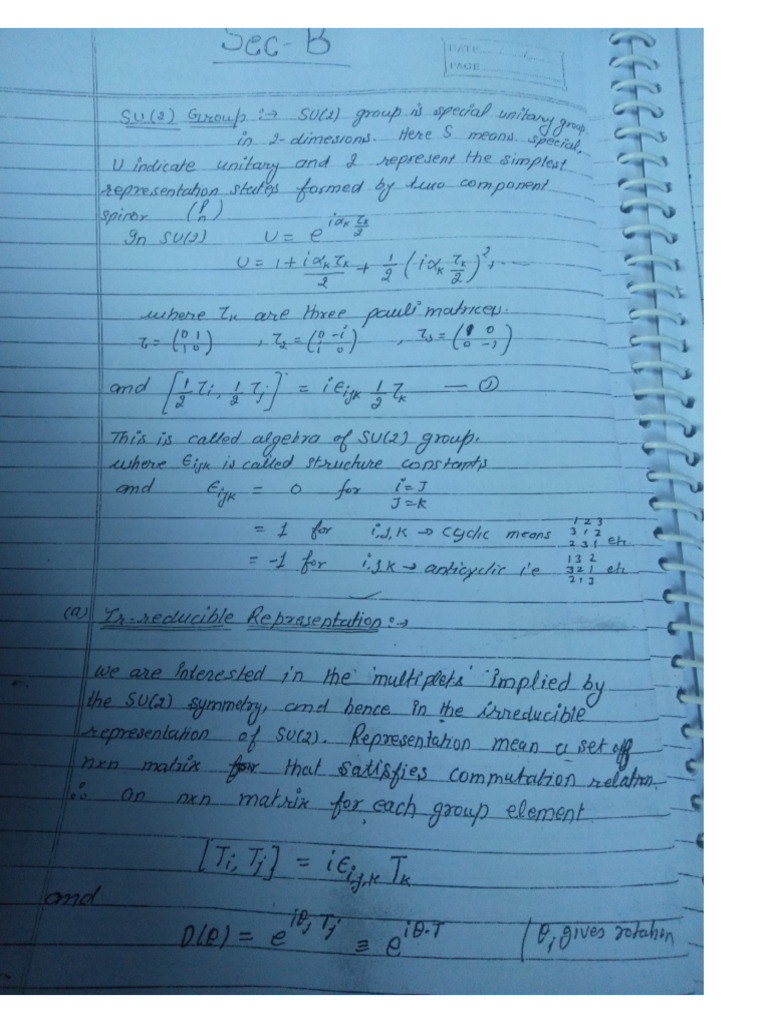 Sec-B
DATE
PAGE
SU(2) Group :→ SU(2) group is special unitary group
in 2-dimesions. Here S means special,
U indicate unitary and 2 represent the simplest
representation states formed by two component
spinor (p n)
In SU(2) U = e^{iα_k τ_k/2}
U = 1 + iα_k τ_k/2 + 1/2 (iα_k τ_k/2)^2 + ..
where τ_k are three pauli matrices.
τ_1 = (0 1 / 1 0) , τ_2 = (0 -i / i 0) , τ_3 = (1 0 / 0 -1)
and [1/2 τ_i, 1/2 τ_j] = iε_{ijk} 1/2 τ_k — ①
This is called algebra of SU(2) group.
where ε_{ijk} is called structure constants
and ε_{ijk} = 0 for i=J
J=k
= 1 for i,j,k → cyclic means 1 2 3 / 3 1 2 / 2 3 1 etc
= -1 for i,j,k → anticyclic i.e 1 3 2 / 3 2 1 / 2 1 3 etc
(a) Ir-reducible Representation :→
we are interested in the 'multiplets' implied by
the SU(2) symmetry, and hence in the irreducible
representation of SU(2). Representation mean a set of
nxn matrix for that satisfies commutation relation.
∴ on nxn matrix for each group element
[T_i, T_j] = iε_{i,j,k} T_k
and
D(θ) = e^{iθ_j T_j} ≡ e^{iθ·T} / θ_i gives rotation